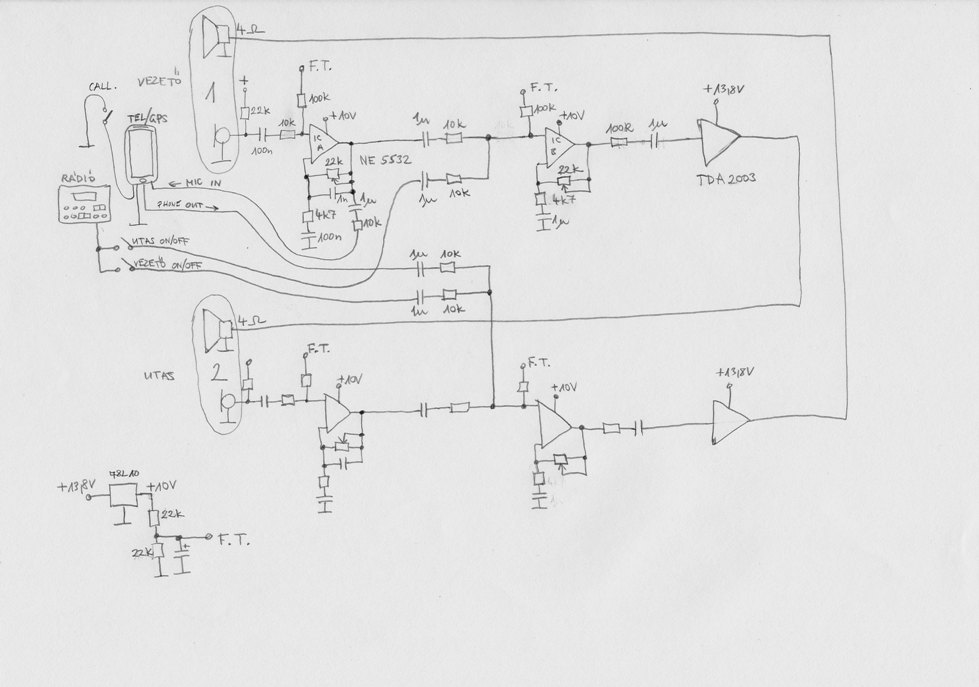 4Ω
VEZETŐ
1
F.T.
+
22k
100k
+10V
10k
100n
IC
A
NE 5532
22k
1n
1µ
4k7
100n
10k
1µ
10k
1µ
10k
F.T.
100k
+10V
IC
B
22k
4k7
1µ
100R
1µ
+13,8V
TDA 2003
CALL.
TEL/GPS
RÁDIÓ
← MIC IN
PHONE OUT →
UTAS ON/OFF
VEZETŐ ON/OFF
1µ
10k
1µ
10k
4Ω
UTAS
2
F.T.
+10V
F.T.
+10V
+13,8V
78L10
+13,8V
+10V
22k
22k
+
F.T.